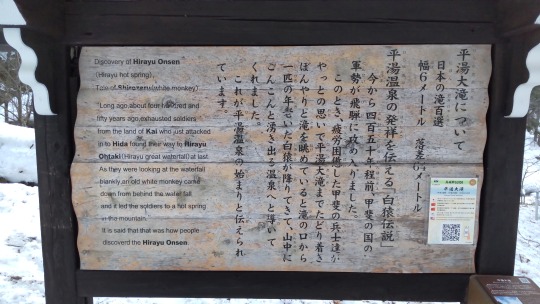 平湯大滝について
日本の滝百選
幅6メートル 落差6メートル
平湯温泉の発祥を伝える「白猿伝説」
今から四百五十年程前、甲斐の国の
軍勢が飛騨に攻め入りました。
このとき、疲労困憊した甲斐の兵士達が
やっとの思いで平湯大滝までたどり着き
ぼんやりと滝を眺めていると滝の口から
一匹の年老いた白猿が降りてきて、山中に
こんこんと湧き出る温泉へと導いて
くれました。
これが平湯温泉の始まりと伝えられ
ています。
Discovery of Hirayu Onsen
(Hirayu hot spring),
Tale of Shirozaru(white monkey)
"Long ago, about four hundred and
fifty years ago, exhausted soldiers
from the land of Kai who just attacked
in to Hida found their way to Hirayu
Ohtaki(Hirayu great waterfall)at last.
As they were looking at the waterfall
blankly, an old white monkey came
down from behind the waterfall
and it led the soldiers to a hot spring
in the mountain.
It is said that that was how people
discoverd the Hirayu Onsen.
平湯大滝